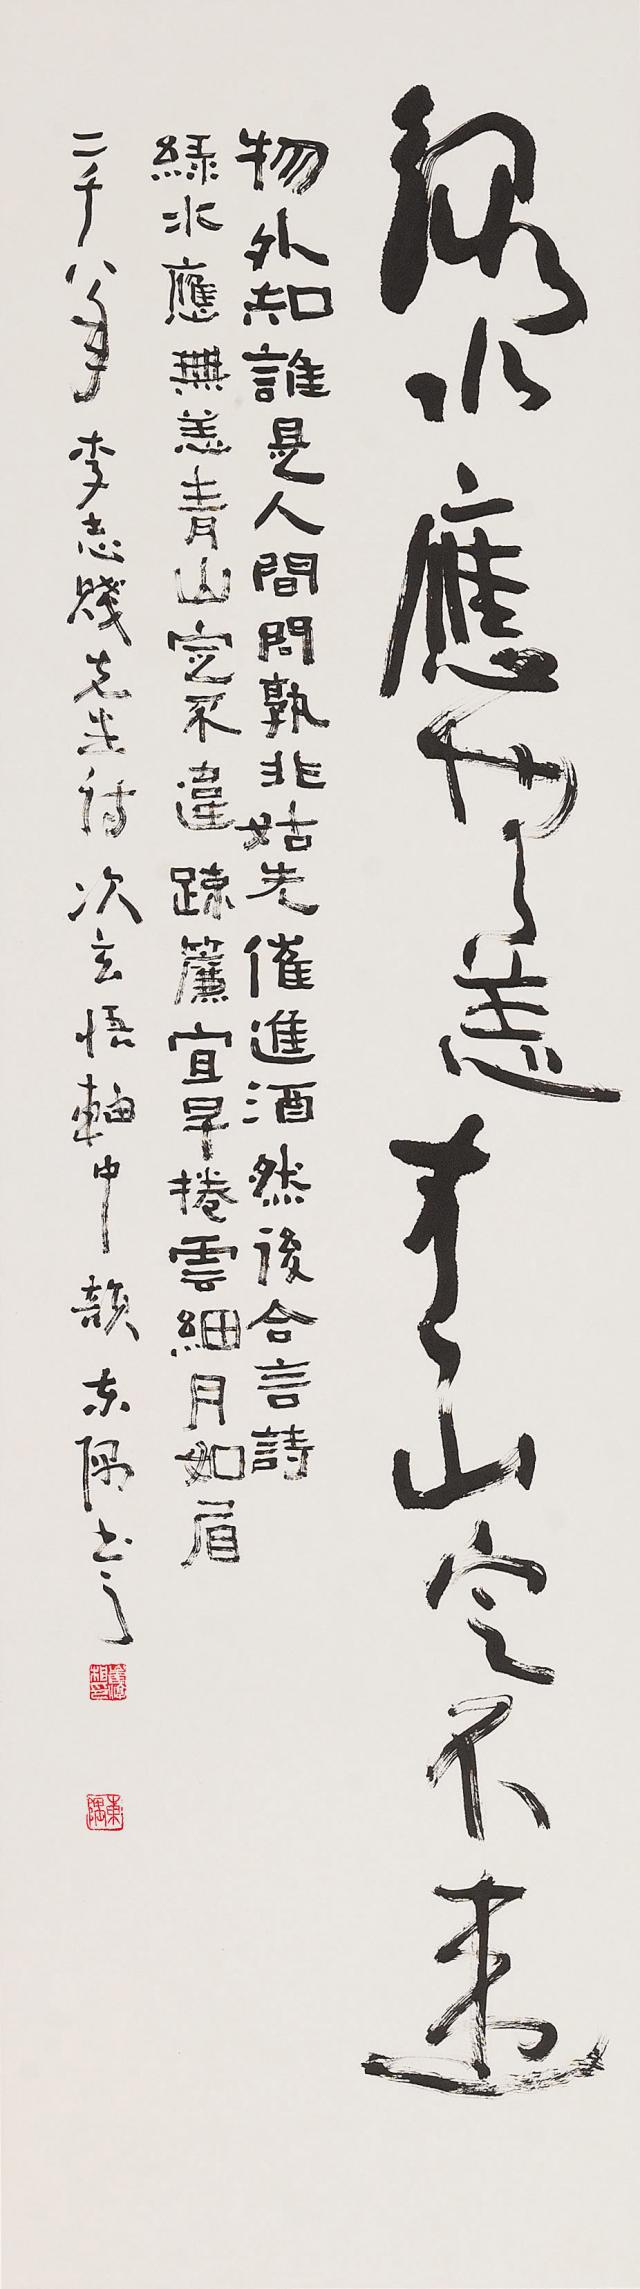 綠水應無恙青山定不違
物外知誰是人間問孰非姑先催進酒然後合言詩
綠水應無恙青山定不違疎簾宜早捲雲細月如眉
二千八年 李志賤先生詩 次玄悟軸中韻 東隅書
東隅